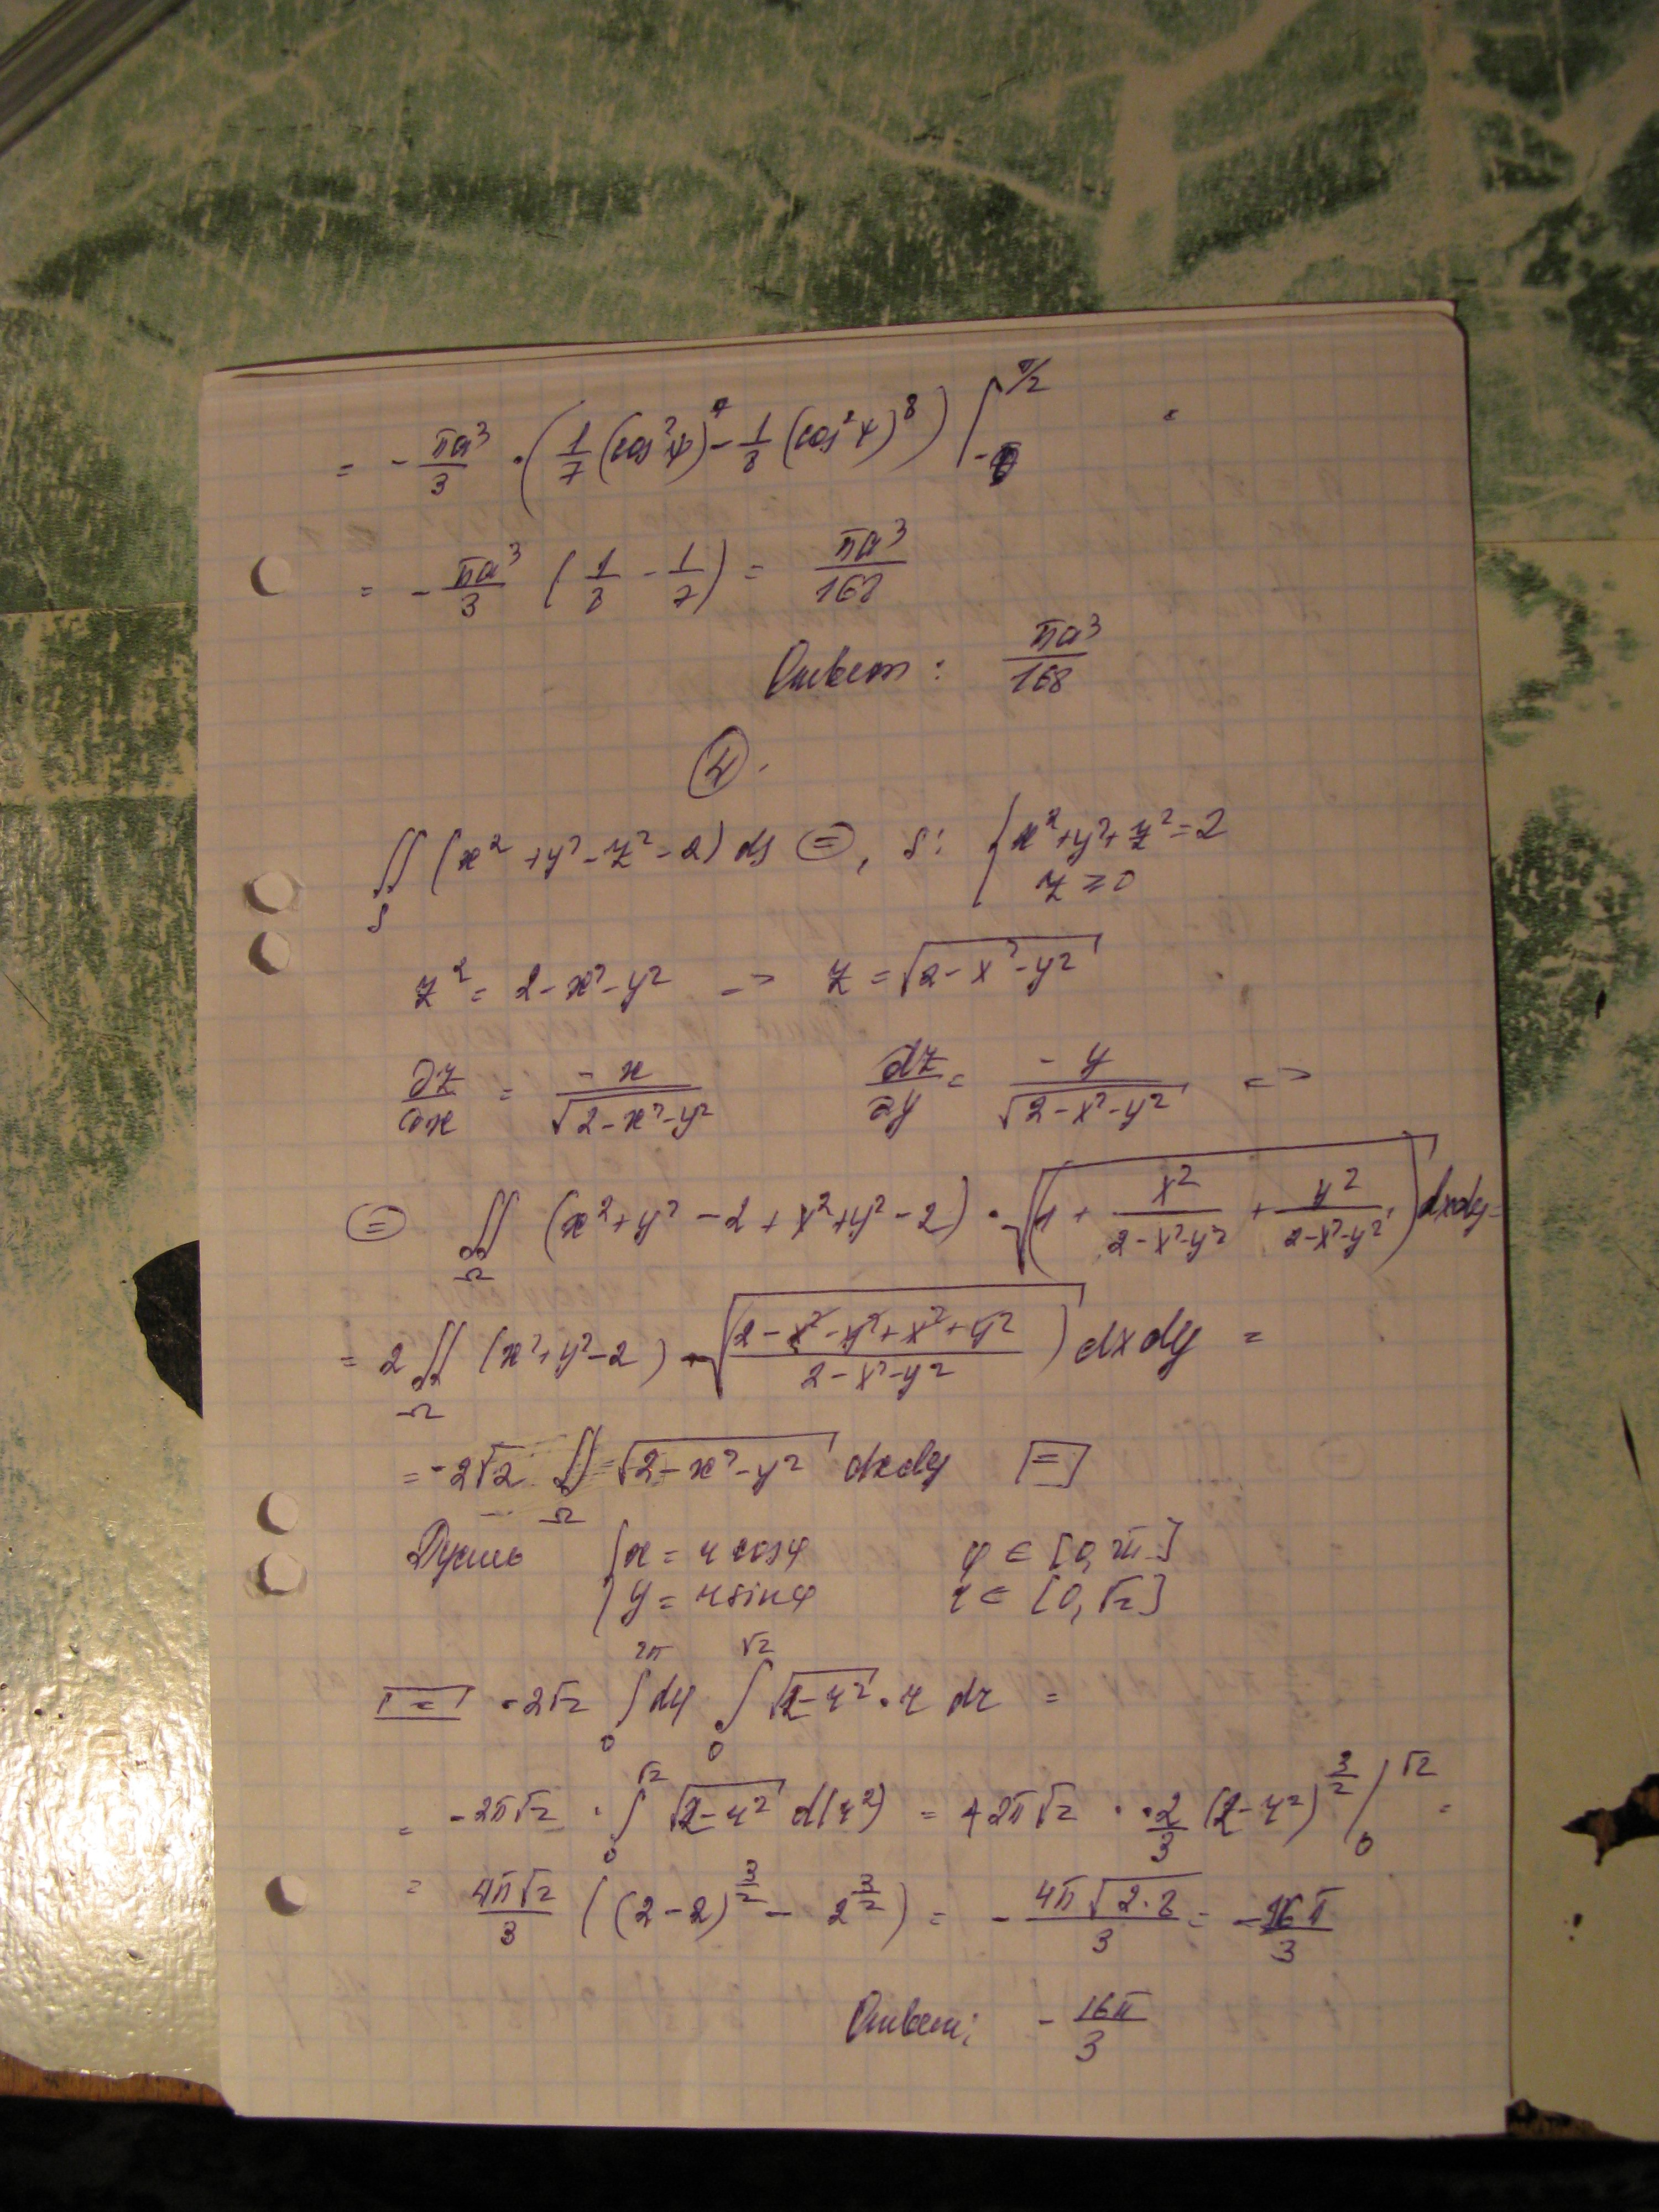 = - πa³/3 · (1/7 (cos²ψ)⁷ - 1/8 (cos²ψ)⁸) |^{π/2}_{-0}
= - πa³/3 (1/8 - 1/7) = πa³/168
Ответ: πa³/168
4.
∬_S (x² + y² - z² - 2) ds (=), S: { x² + y² + z² = 2
z ≥ 0
z² = 2 - x² - y² => z = √(2 - x² - y²)
∂z/∂x = -x/√(2 - x² - y²) ∂z/∂y = -y/√(2 - x² - y²) =>
(=) ∬_Ω (x² + y² - 2 + x² + y² - 2) · √(1 + x²/(2 - x² - y²) + y²/(2 - x² - y²)) dxdy =
= 2 ∬_Ω (x² + y² - 2) · √((2 - x² - y² + x² + y²)/(2 - x² - y²)) dxdy =
= -2√2 ∬_Ω √(2 - x² - y²) dxdy [=]
Пусть { x = r cosφ φ ∈ [0, 2π]
{ y = r sinφ r ∈ [0, √2]
[=] -2√2 ∫_0^{2π} dφ ∫_0^{√2} √(2 - r²) · r dr =
= -2π√2 · ∫_0^{√2} √(2 - r²) d(r²) = +2π√2 · 2/3 (2 - r²)^{3/2} |_0^{√2} =
= 4π√2/3 ((2 - 2)^{3/2} - 2^{3/2}) = - 4π√(2·8)/3 = - 16π/3
Ответ: - 16π/3